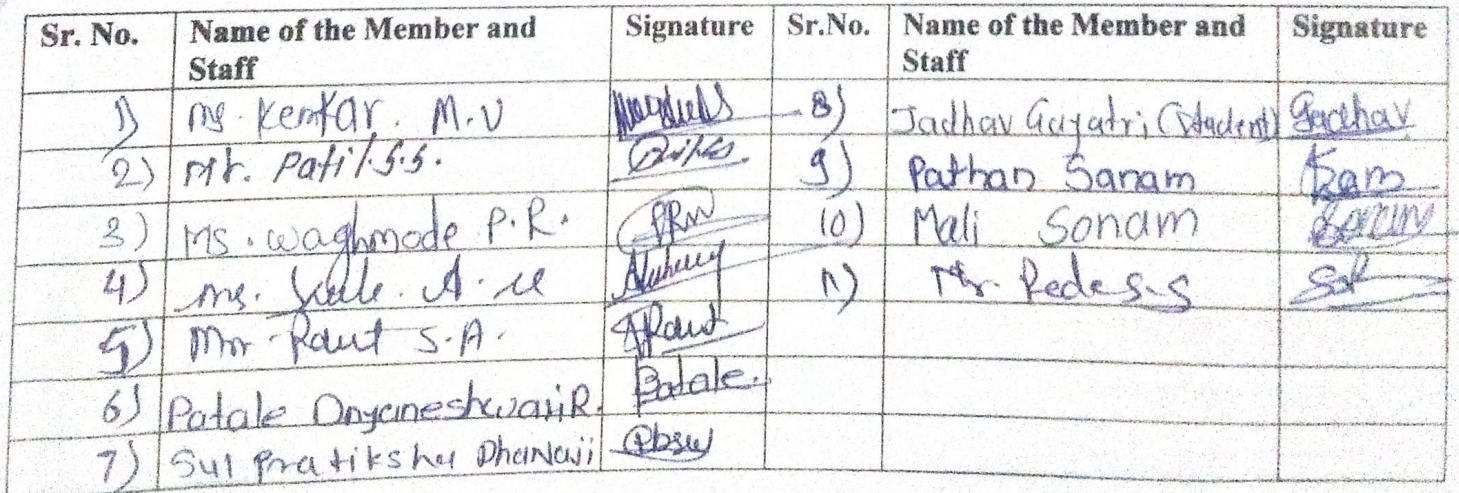 Sr. No. Name of the Member and Staff Signature Sr.No. Name of the Member and Staff Signature
1) Ms. Kentar. M.V 8) Jadhav Gayatri (Student) Gadhav
2) Mr. Patil.S.S. 9) Pathan Sanam Sam
3) Ms. Waghmode P.R. PRW 10) Mali Sonam
4) Ms. A. 11) Mr. Rede S.S
5) Mr Raut S.A. Raut
6) Patale Dnyaneshwari R. Patale.
7) Sul Pratiksha Dhanaji